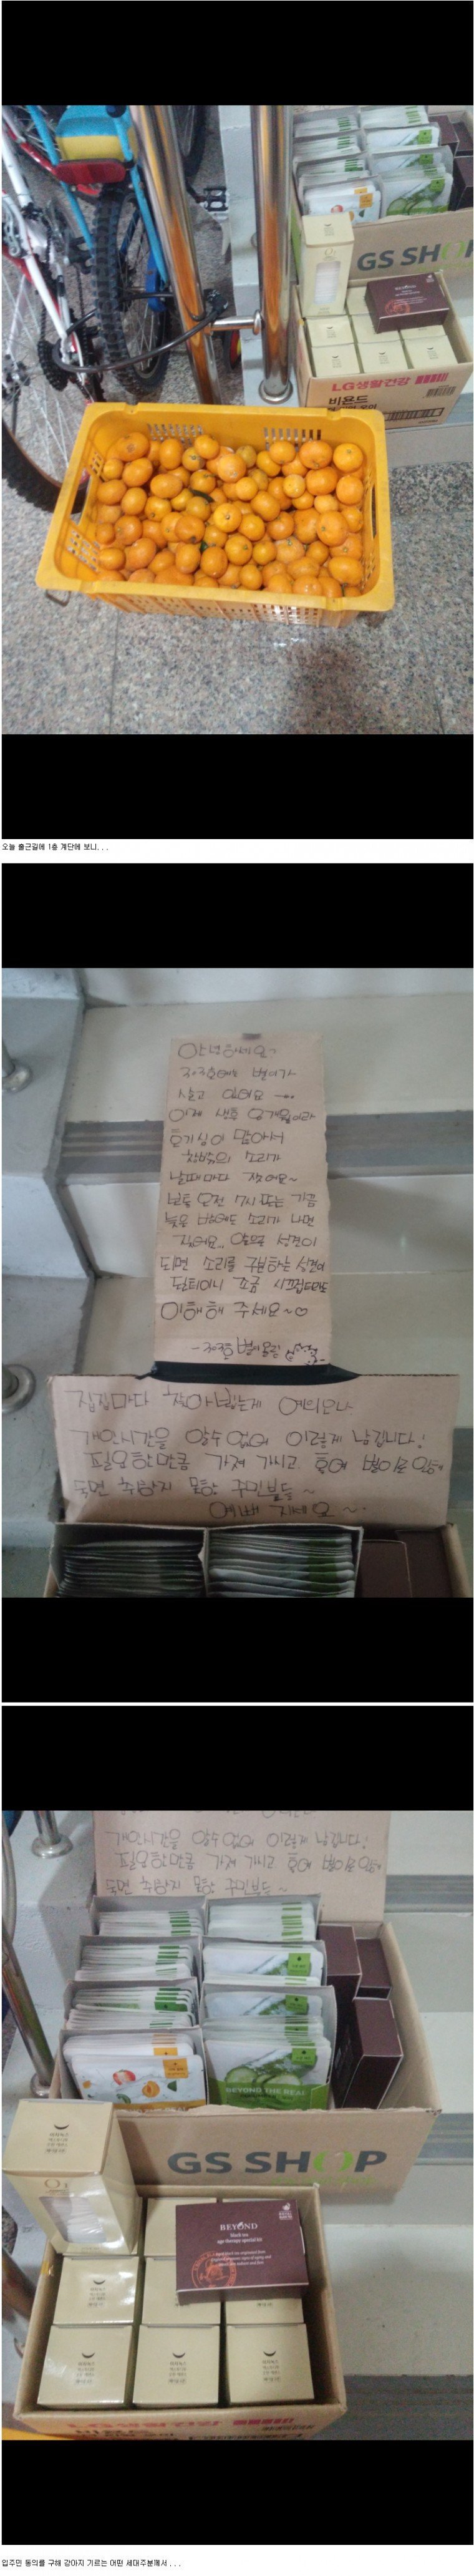 GS SHOP
BEYOND
LG생활건강
비욘드
오늘 출근길에 1층 계단에 보니. . .
안녕하세요?
303호에는 별이가
살고 있어요
이제 생후 8개월이라
호기심이 많아서
창밖의 소리가
날때마다 짖어요~
보통 오전 7시 또는 가끔
늦은 밤에도 소리가 나면
짖어요... 앞으로 성견이
되면 소리를 구분하는 성견이
될터이니 조금 시끄럽더라도
이해해 주세요~♡
- 303호 별이 올림
집집마다 찾아뵙는게 예의오나
개인시간을 알수 없어 이렇게 남깁니다!
필요한만큼 가져 가시고 혹여 별이로 인해
숙면 취하지 못한 주민분들~
예뻐 지세요~
개인시간을 알수 없어 이렇게 남깁니다!
필요한만큼 가져 가시고 혹여 별이로 인해
숙면 취하지 못한 주민분들~
BEYOND THE REAL
GS SHOP
BEYOND
black tea
age therapy special kit
LG생활건강
입주민 동의를 구해 강아지 기르는 어떤 세대주분께서 . . .